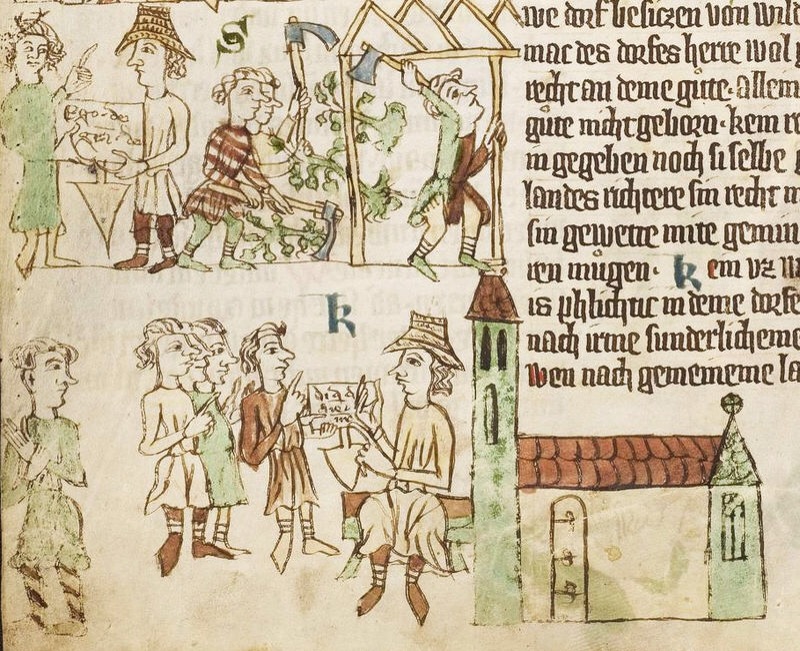 S
Ego·de
gra·de
we dorf besiczen von wild
mac des dorfes herre wol g
recht an deme gute· allein
gute nicht geborn· kein re
in gegeben noch si selbe g
landes richtere sin recht m
sin gewette mite gemin
ren mugen· k ein vz w
is phlichtic in deme dorfe
nach irme sunderlicheme
wen nach gememeineme la
k